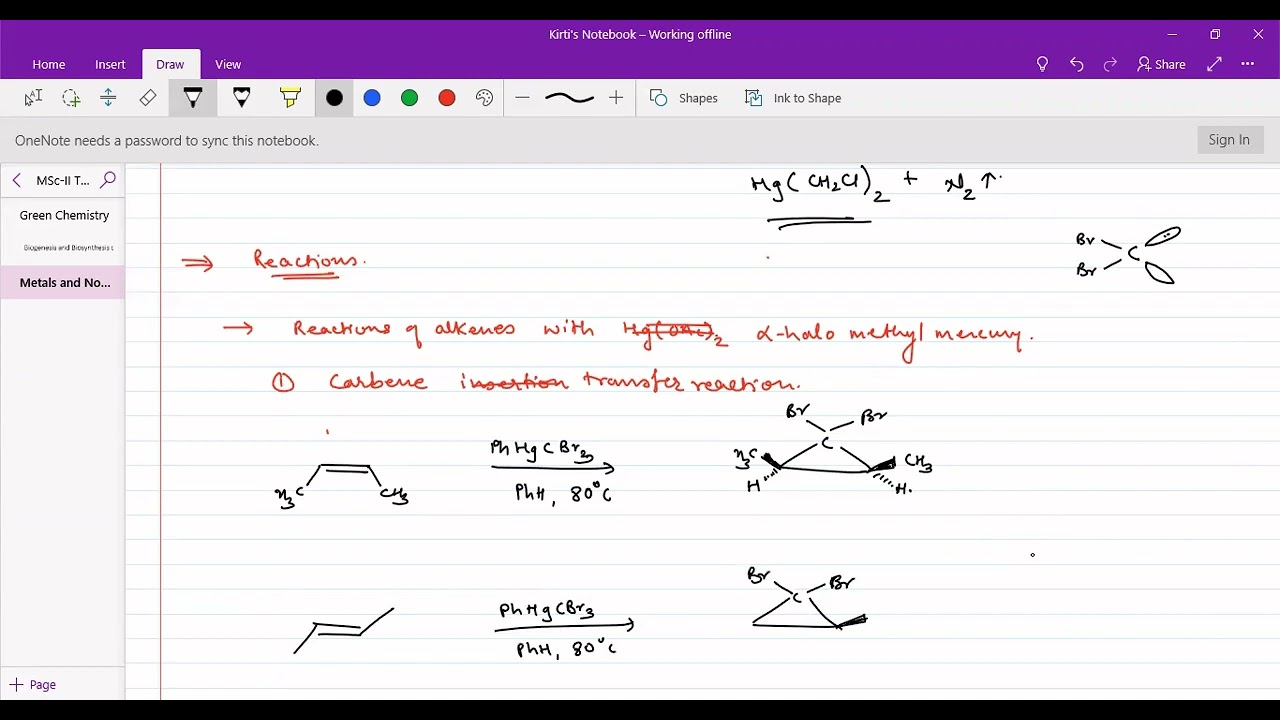 Kirti's Notebook – Working offline
Home Insert Draw View Share
Shapes Ink to Shape
OneNote needs a password to sync this notebook. Sign In
MSc-II T...
Green Chemistry
Biogenesis and Biosynthesis
Metals and No...
Page
Hg(CH2Cl)2 + N2↑
Br
C
Br
⇒ Reactions.
→ Reactions of alkenes with Hg(OAc)2 α-halo methyl mercury.
① Carbene insertion transfer reaction.
Br Br
C
PhHgCBr3
H3C CH3
H H.
H3C CH3
PhH, 80°C
Br Br
C
PhHgCBr3
PhH, 80°C